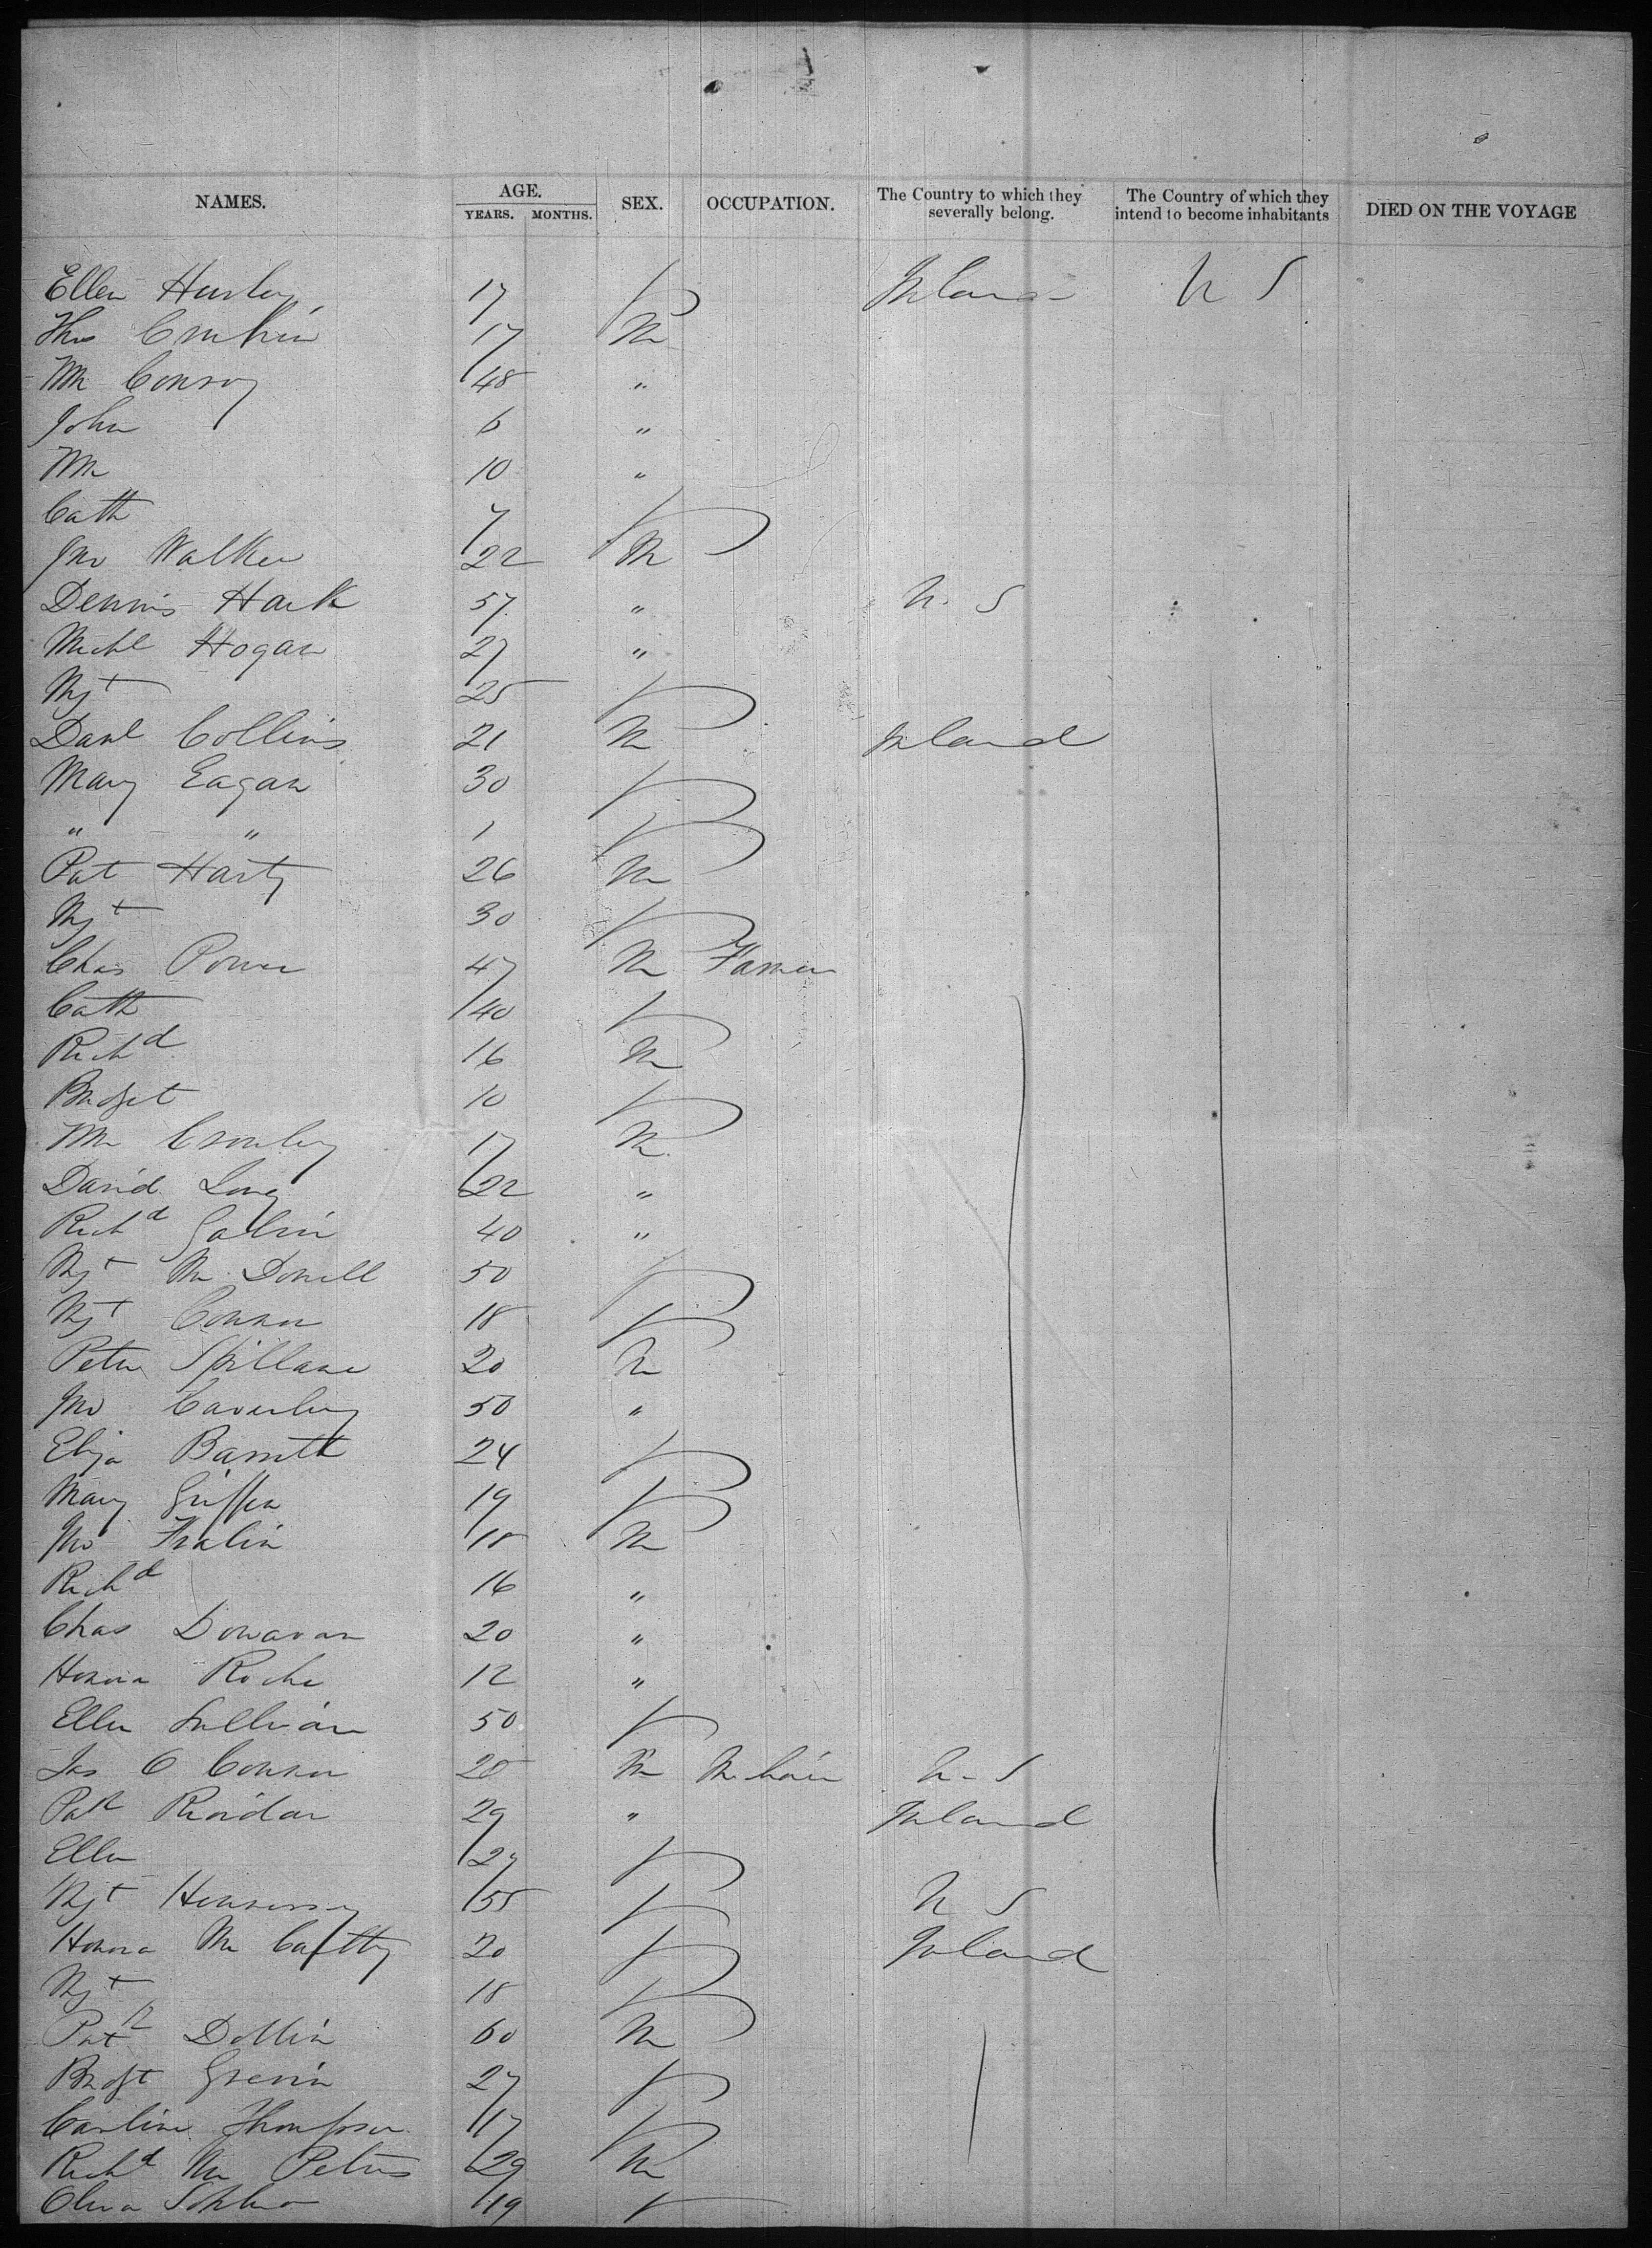 NAMES. AGE. SEX. OCCUPATION. The Country to which they severally belong. The Country of which they intend to become inhabitants DIED ON THE VOYAGE
YEARS. MONTHS.
Ellen Hurley 17 Ireland U S
Thos 17 M
Wm Conroy 48 "
John 6 "
Wm 10 "
Cath 7
Jno Walker 22 M
Dennis Hark 57 " U. S
Michl Hogan 27 "
Mgt 25
Danl Collins 21 M Ireland
Mary Eagan 30
" " 1
Pat Harty 26 M
Mgt 30
Chas Power 47 M Farmer
Cath 40
Richd 16 M
Bridget 10
Wm Crowley 17 M
David Long 22 "
Richd Galvin 40 "
Mgt Mc Donell 50
Mgt Connor 18
Peter Spillane 20 M
Jno 50 "
Eliza Barrett 24
Mary Griffin 19
Jno 18 M
Richd 16 "
Chas Donavan 20 "
Honora Roche 12 "
Ellen Sullivan 50
Jas O Connor 20 M U. S
Patk Riordan 29 " Ireland
Ellen 27
Mgt Hennessy 55 U S
Honora Mc Carthy 20 Ireland
Mgt 18
Patk 60 M
Bridgt 27
Caroline Thompson 17
Richd Mc Peters 29 M
19